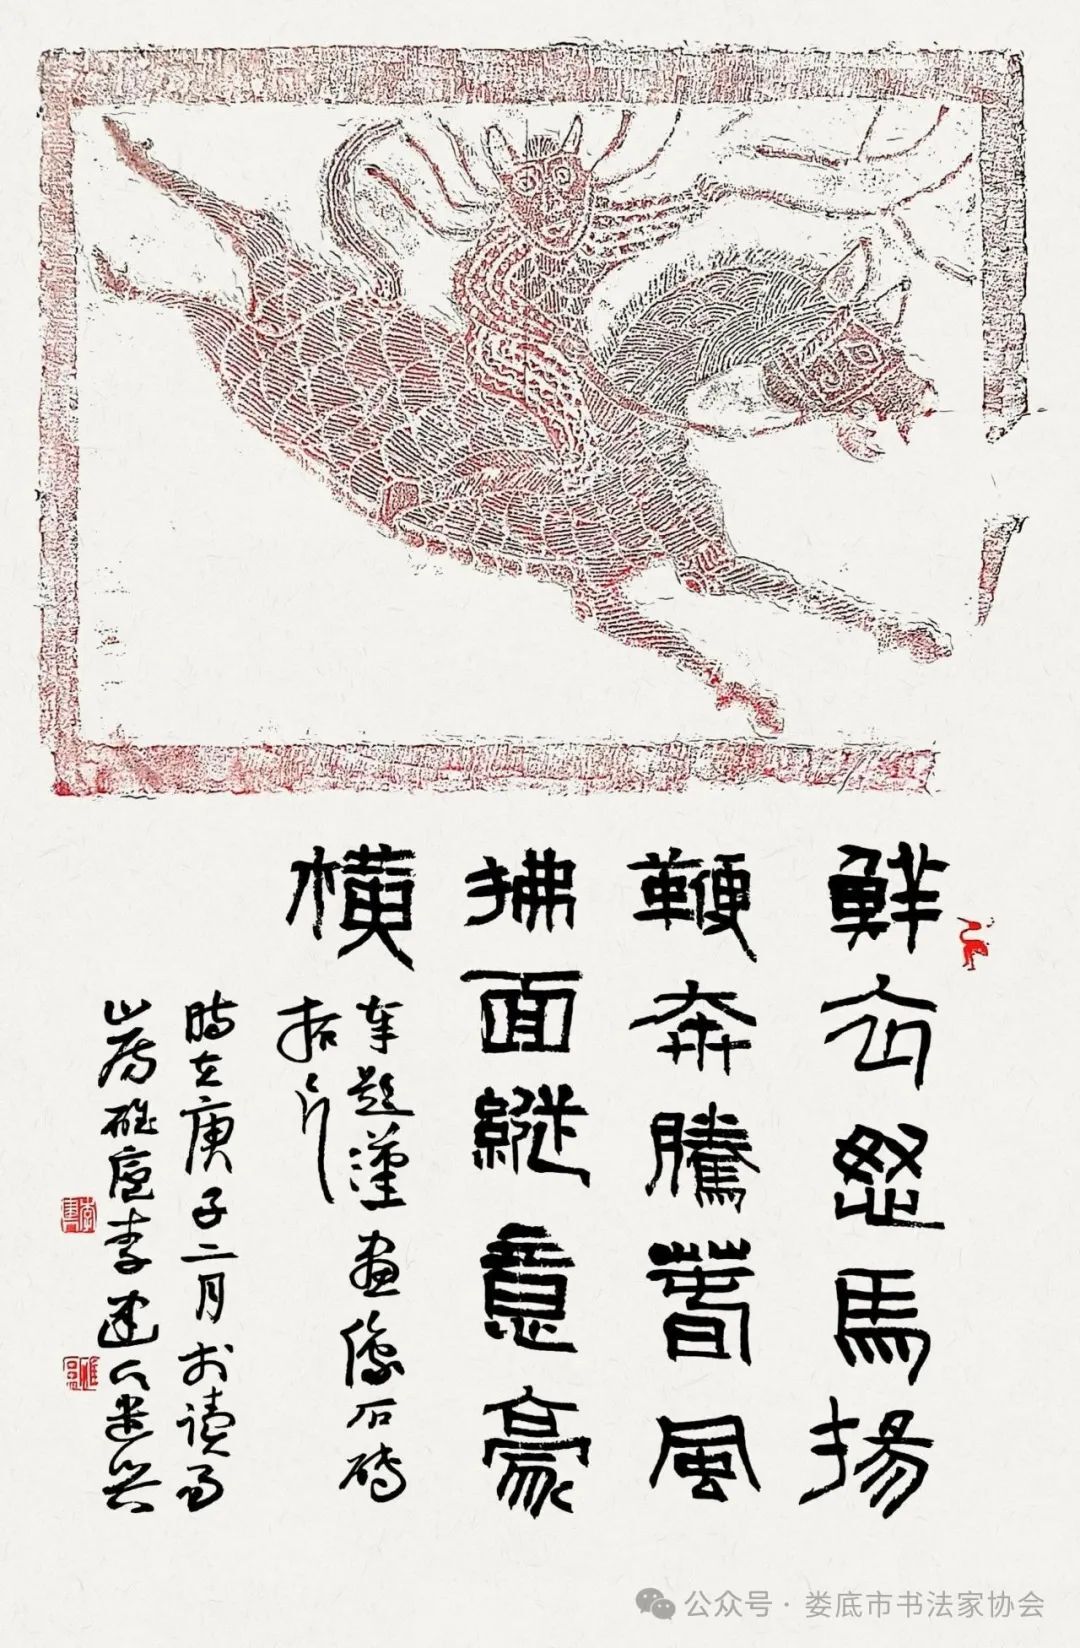 鮮衣怒馬揚
鞭奔騰舊風
拂面縱意豪
橫
奉題漢画像石磚
拓片
時在庚子二月於讀
山房 李建 遣興
公众号·娄底市书法家协会